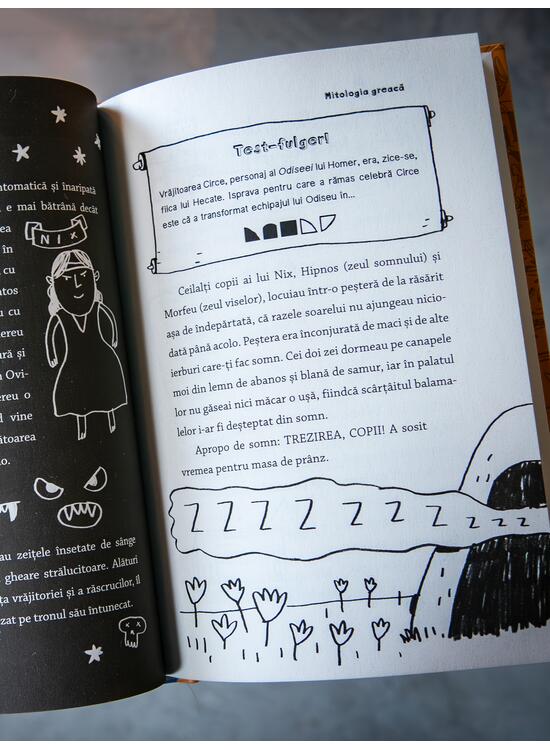 ntomatică și înaripată
e mai bătrână decât
NIX
în
cu
cu
și
Ovi-
o
vine
au zeițele însetate de sânge
gheare strălucitoare. Alături
vrăjitoriei și a răscrucilor, îl
pe tronul său întunecat.
Mitologia greacă
Test-fulger!
Vrăjitoarea Circe, personaj al Odiseei lui Homer, era, zice-se,
fiica lui Hecate. Isprava pentru care a rămas celebră Circe
este că a transformat echipajul lui Odiseu în...
Ceilalți copii ai lui Nix, Hipnos (zeul somnului) și
Morfeu (zeul viselor), locuiau într-o peșteră de la răsărit
așa de îndepărtată, că razele soarelui nu ajungeau nicio-
dată până acolo. Peștera era înconjurată de maci și de alte
ierburi care-ți fac somn. Cei doi zei dormeau pe canapele
moi din lemn de abanos și blană de samur, iar în palatul
lor nu găseai nici măcar o ușă, fiindcă scârțâitul balama-
lelor i-ar fi deșteptat din somn.
Apropo de somn: TREZIREA, COPII! A sosit
vremea pentru masa de prânz.
Z Z Z Z Z Z Z Z Z Z